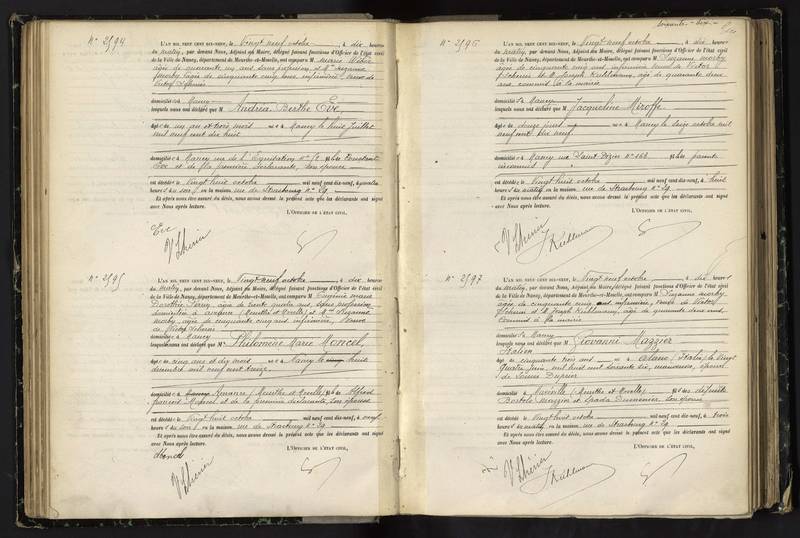 N° 2594
L'AN MIL NEUF CENT DIX-NEUF, le Vingt neuf octobre, à dix heures
du matin, par devant Nous, Adjoint au Maire, délégué faisant fonctions d'Officier de l'état civil
de la Ville de Nancy, département de Meurthe-et-Moselle, ont comparu M Marie
âgée de quarante un ans sans profession et Mme Suzanne
âgée de cinquante cinq ans infirmière, veuve de
Victor
domiciliés à Nancy
lesquels nous ont déclaré que M Andréa Berthe Eve
âgée de un an et trois mois née à Nancy le huit juillet
mil neuf cent dix huit
domiciliée à Nancy rue de l'Equitation fille de Constant
Eve et de la première déclarante, son épouse
est décédée le Vingt huit octobre mil neuf cent dix-neuf, à quatre
heures du soir, en la maison, rue de Strasbourg n° 29
Et après nous être assuré du décès, nous avons dressé le présent acte que les déclarants ont signé
avec Nous après lecture.
L'OFFICIER DE L'ÉTAT CIVIL,
Eve
N° 2595
L'AN MIL NEUF CENT DIX-NEUF, le Vingt neuf octobre, à dix heures
du matin, par devant Nous, Adjoint au Maire, délégué faisant fonctions d'Officier de l'état civil
de la Ville de Nancy, département de Meurthe-et-Moselle, ont comparu M Eugénie Marie
âgée de trente quatre ans, sans profession
domiciliée à (Meurthe et Moselle) et Mme Suzanne
âgée de cinquante cinq ans infirmière, veuve
de Victor
domiciliée à Nancy
lesquels nous ont déclaré que M Philomène Marie Moncel,
âgée de cinq ans et dix mois née à Nancy le huit
décembre mil neuf cent treize
domiciliée à Amance (Meurthe et Moselle) fille de Alfred
François Moncel et de la première déclarante, son épouse
est décédée le Vingt huit octobre mil neuf cent dix-neuf, à
heures du soir, en la maison, rue de Strasbourg n° 29
Et après nous être assuré du décès, nous avons dressé le présent acte que les déclarants ont signé
avec Nous après lecture.
L'OFFICIER DE L'ÉTAT CIVIL,
soixante-dix
N° 2596
L'AN MIL NEUF CENT DIX-NEUF, le Vingt neuf octobre, à dix heures
du matin, par devant Nous, Adjoint au Maire, délégué faisant fonctions d'Officier de l'état civil
de la Ville de Nancy, département de Meurthe-et-Moselle, ont comparu M Suzanne
âgée de cinquante cinq ans, infirmière veuve de Victor
et M Joseph Kuhlmann, âgé de quarante deux
ans, commis à la mairie
domiciliés à Nancy
lesquels nous ont déclaré que M Jacqueline Miroffe
âgée de douze jours née à Nancy le seize octobre mil
neuf cent dix neuf
domiciliée à Nancy rue Saint Dizier n° 166 fille de parents
est décédée le Vingt huit octobre mil neuf cent dix-neuf, à huit
heures du matin, en la maison, rue de Strasbourg n° 29
Et après nous être assuré du décès, nous avons dressé le présent acte que les déclarants ont signé
avec Nous après lecture.
L'OFFICIER DE L'ÉTAT CIVIL,
J Kuhlmann
N° 2597
L'AN MIL NEUF CENT DIX-NEUF, le Vingt neuf octobre, à dix heures
du matin, par devant Nous, Adjoint au Maire, délégué faisant fonctions d'Officier de l'état civil
de la Ville de Nancy, département de Meurthe-et-Moselle, ont comparu M Suzanne
âgée de cinquante cinq ans, infirmière, veuve de Victor
et M Joseph Kuhlmann, âgé de quarante deux ans,
commis à la mairie
domiciliés à Nancy
lesquels nous ont déclaré que M Giovanni Mazzier
Italien
âgé de cinquante trois ans né à Alano (Italie) le vingt
quatre juin, mil huit cent soixante six, manœuvre, époux
de Louise Dupier
domicilié à Maxéville (Meurthe et Moselle) fils des défunts
Bortolo Mazzier et Spada Domenica, son épouse
est décédé le Vingt huit octobre mil neuf cent dix-neuf, à trois
heures du matin, en la maison, rue de Strasbourg n° 29
Et après nous être assuré du décès, nous avons dressé le présent acte que les déclarants ont signé
avec Nous après lecture.
L'OFFICIER DE L'ÉTAT CIVIL,
J Kuhlmann